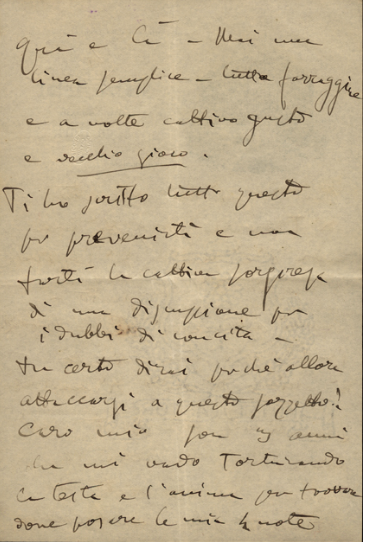 quà e là - Mai una
linea semplice - tutta farraggine
e a volte cattivo gusto
e vecchio gioco.
Ti ho scritto tutto questo
per prevenirti e non
farti la cattiva sorpresa
di una disillusione per
i dubbi di riuscita -
tu certo dirai perché allora
attaccarsi a questo soggetto?
Caro mio son 3 anni
che mi vado torturando
la testa e l'anima per trovare
dove posare le mie 4 note